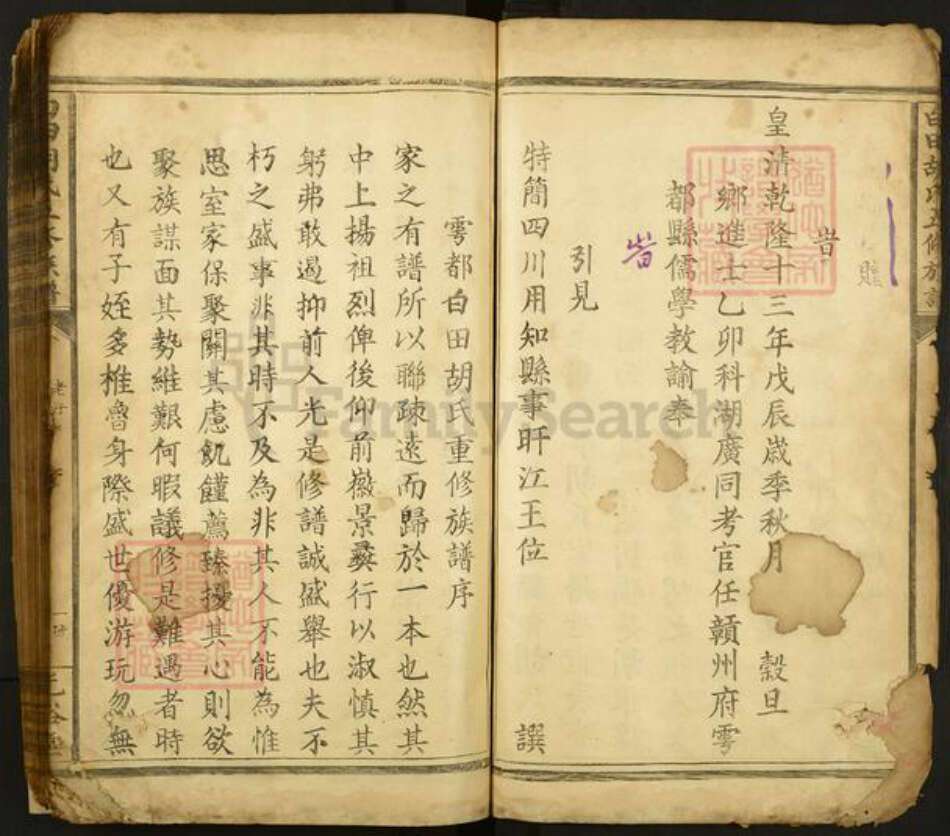 白田胡氏五修族譜
皇清乾隆十三年戊辰歲季秋月 穀旦
鄉進士乙卯科湖廣同考官任贛州府雩
都縣儒學教諭奉
旹
旹
引見
特簡四川用知縣事盱江王位 譔
雩都白田胡氏重修族譜序
家之有譜所以聯疎遠而歸於一本也然其
中上揚祖烈俾後仰前徽景彜行以淑慎其
躬弗敢遏抑前人光是修譜誠盛舉也夫不
朽之盛事非其時不及為非其人不能為惟
思室家保聚關其慮飢饉薦臻擾其心則欲
聚族謀面其勢維艱何暇議修是難遇者時
也又有子姪多椎魯身際盛世優游玩忽無
FamilySearch